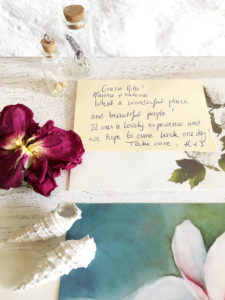 Hanna + Valeria
What a wonderful place
and beautiful people!
It was a lovely experience and
we hope to come back one day!
Take care, H + J